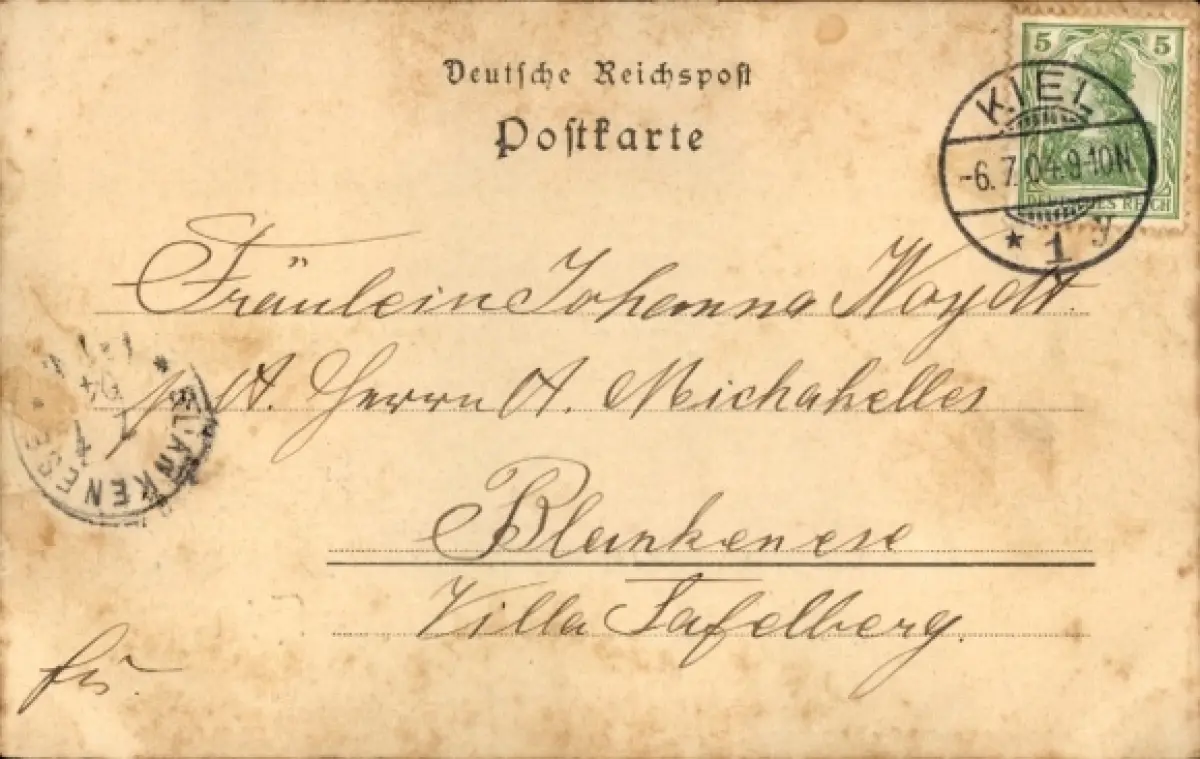 Deutsche Reichspost
Postkarte
5 5
KIEL
-6.7.04.9-10N
DEUTSCHES REICH
* 1 y
Fräulein Johanna Woydt.
p. A. Herrn A. Michahelles
BLANKENESE
Blankenese
Villa Tafelberg.